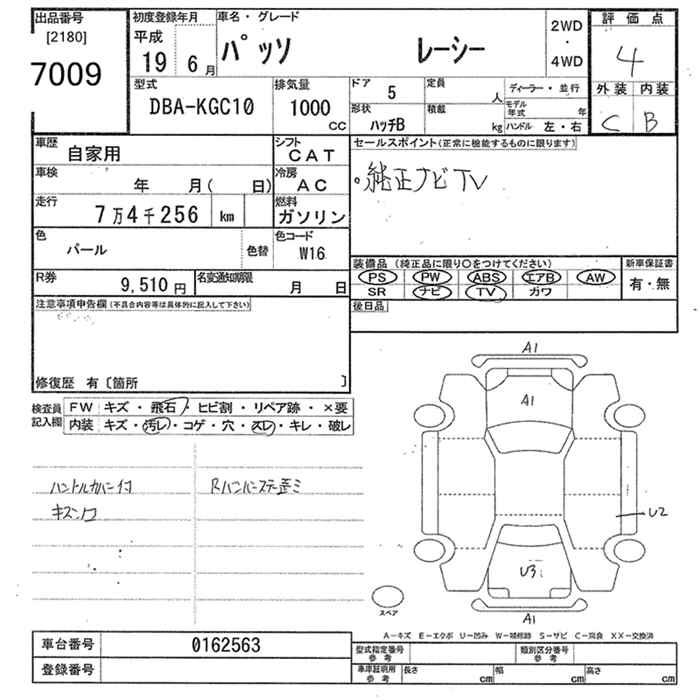 出品番号
[2180]
7009
初度登録年月
平成
19 6月
車名・グレード
パッソ レーシー
2WD
・
4WD
評価点
4
外装 内装
C B
型式
DBA-KGC10
排気量
1000
CC
ドア 5
形状
ハッチB
定員
人
積載
kg
ディーラー・並行
モデル
年式 年
ハンドル 左・右
車歴
自家用
シフト
CAT
車検
年 月( 日)
冷房
AC
走行
7万4千256 km
燃料
ガソリン
色
パール
色替
色コード
W16
R券
9,510円
名変通知期限
月 日
セールスポイント(正常に機能するものに限ります)
。純正ナビTV
装備品 (純正品に限り〇をつけてください)
PS PW ABS エアB AW
SR ナビ TV ガワ
新車保証書
有・無
後日品
注意事項申告欄(不具合内容等は具体的に記入して下さい)
修復歴 有〔箇所 〕
検査員
記入欄
FW キズ・飛石・ヒビ割・リペア跡・×要
内装 キズ・汚レ・コゲ・穴・スレ・キレ・破レ
ハンドルカバー付
キズソコ
Rバンパーステー歪ミ
A1
A1
U2
U3
A1
スペア
A-キズ E-エクボ U-凹み W-補修跡 S-サビ C-腐食 XX-交換済
車台番号 0162563
登録番号
型式指定番号
参考
類別区分番号
参考
車庫証明用
参考
長さ cm 幅 cm 高さ cm